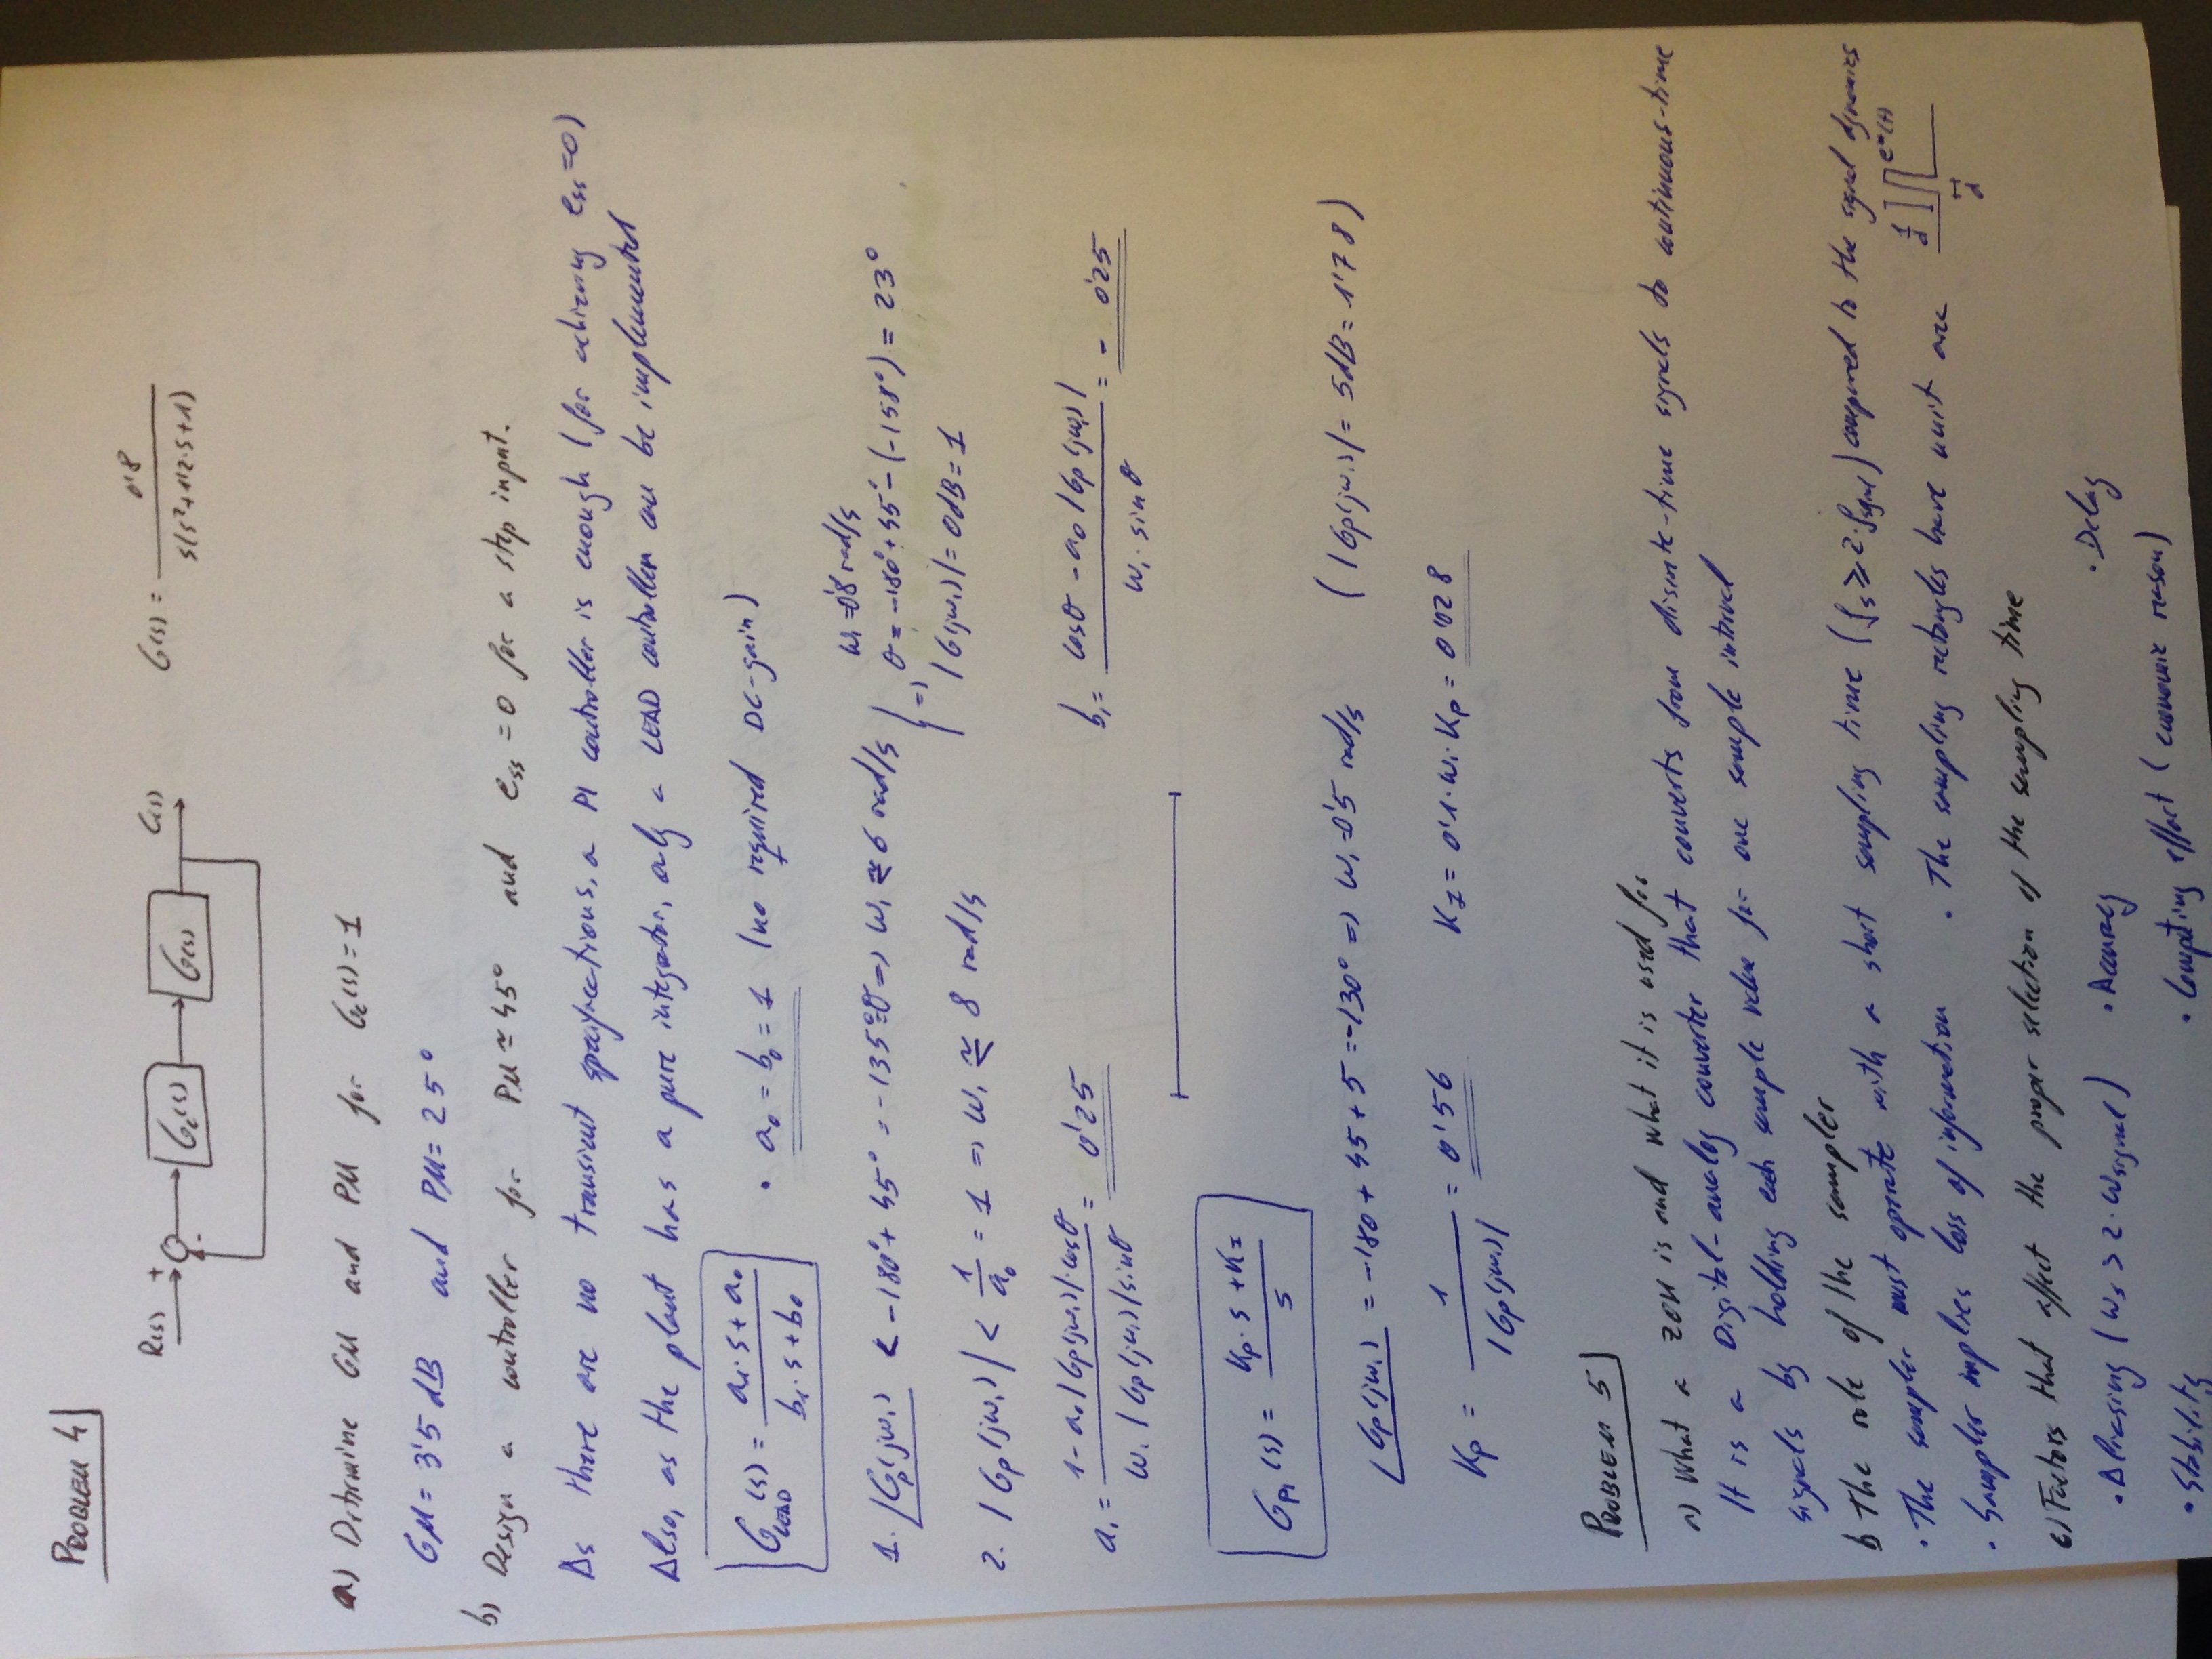 PROBLEM 4
R(s) + - Gc(s) G(s) C(s) G(s) = 0'8 / s(s²+1'2·s+1)
a) Determine GM and PM for Gc(s)=1
GM= 3'5 dB and PM= 25°
b) Design a controller for PM ≃ 45° and ess =0 for a step input.
As there are no transient specifications, a PI controller is enough (for achieving ess=0)
Also, as the plant has a pure integrator, only a LEAD controller can be implemented
G LEAD (s) = a₁·s+a₀ / b₁·s+b₀ · a₀ = b₀ = 1 (no required DC-gain)
1. /Gp(jω₁) < -180°+45° = -135°=θ => ω₁ ≅ 6 rad/s | => ω₁=0'8 rad/s
θ = -180°+45°-(-158°) = 23°
|G(jω₁)|= 0dB=1
2. |Gp(jω₁)| < 1/a₀ = 1 => ω₁ ≅ 8 rad/s
a₁ = 1-a₀|Gp(jω₁)|·cosθ / ω₁|Gp(jω₁)|sinθ = 0'25 b₁ = cosθ - a₀|Gp(jω₁)| / ω₁·sinθ = - 0'25
GPI (s) = Kp·s+KI / s
/Gp(jω₁) = -180+45+5=-130° => ω₁=0'5 rad/s (|Gp(jω₁)|= 5dB= 1'78)
Kp = 1 / |Gp(jω₁)| = 0'56 KI = 0'1·ω₁·Kp = 0'028
PROBLEM 5
a) What a ZOH is and what it is used for
It is a Digital-analog converter that converts from discrete-time signals to continuous-time
signals by holding each sample value for one sample interval
b The role of the sampler
· The sampler must operate with a short sampling time (fs ≥ 2·fsignal) compared to the signal dynamics
· Sampler implies loss of information · The sampling rectangles have unit area 1/d e*(t) d
c) Factors that affect the proper selection of the sampling time
· Aliasing (ωs > 2·ωsignal) · Accuracy · Delay
· Stability · Computing effort (economic reason)